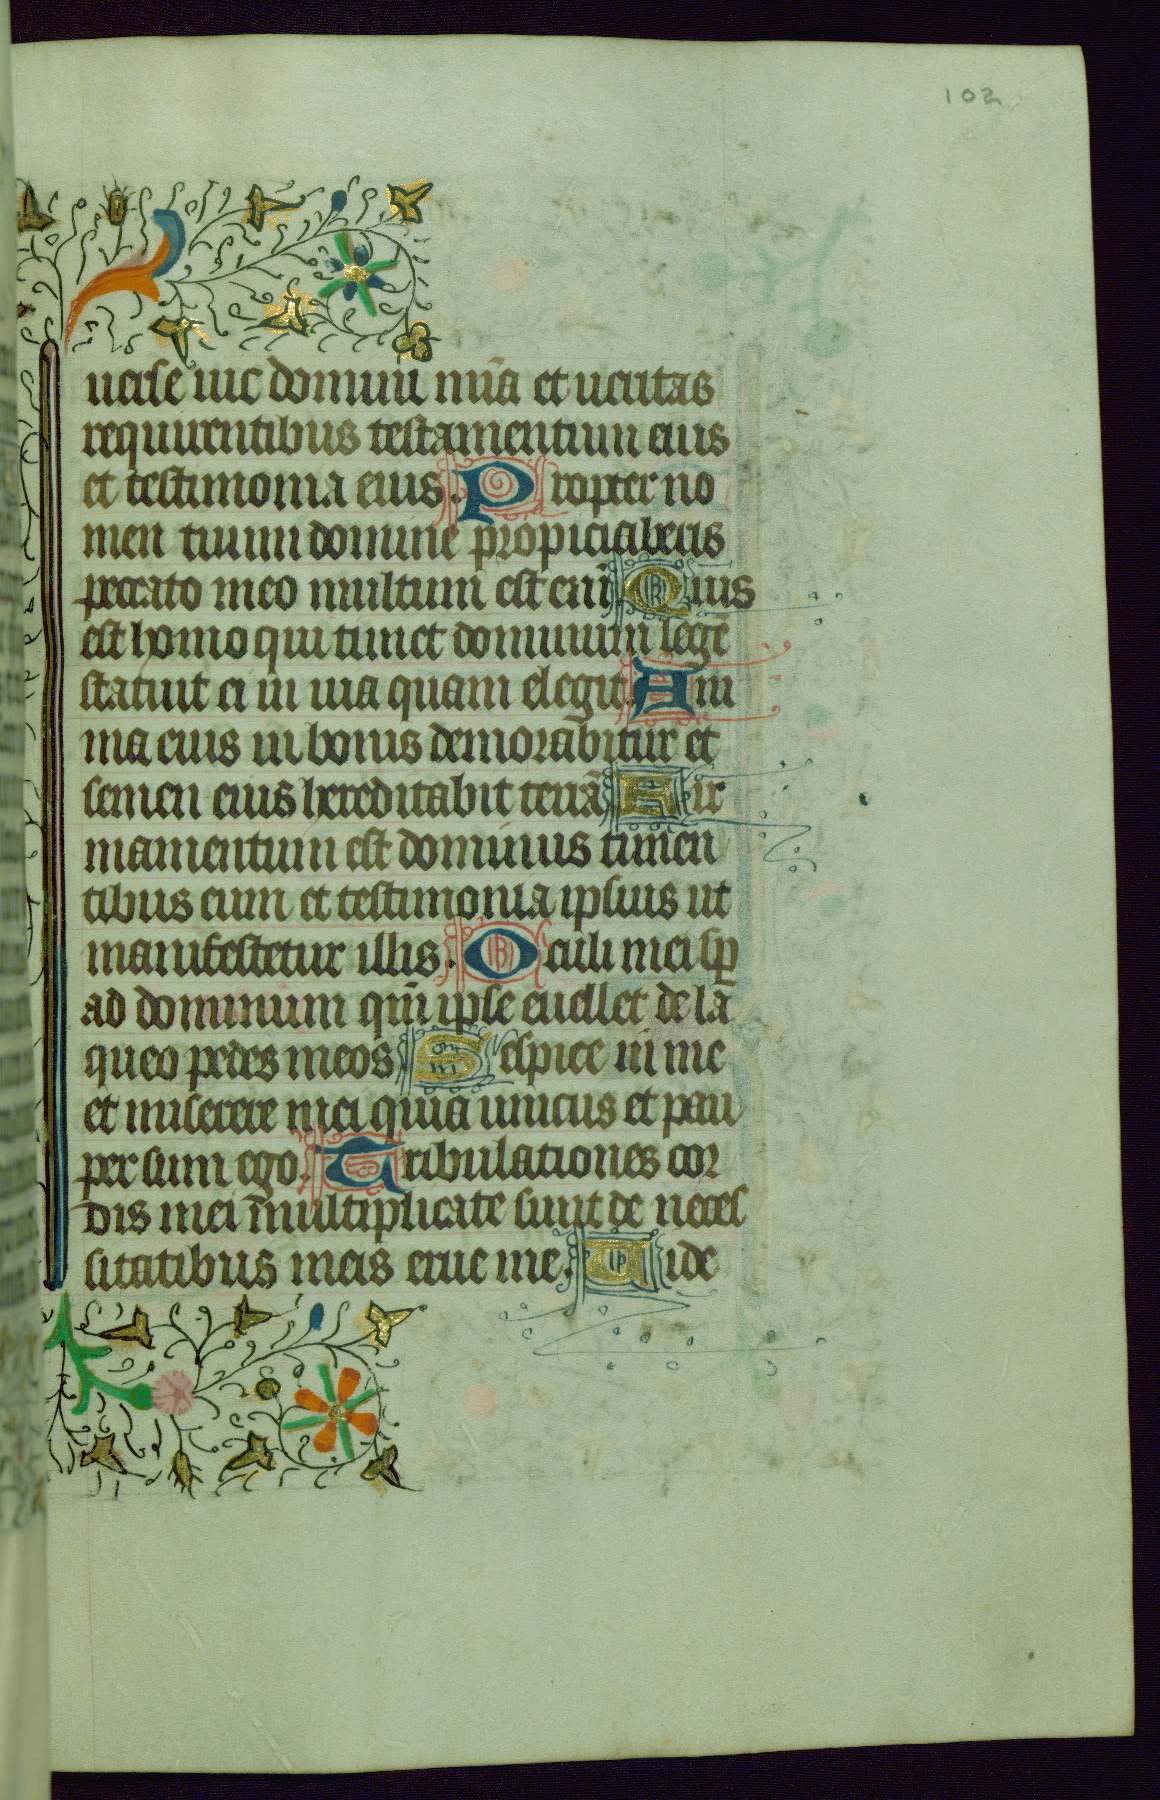 102
uerse uie domini mīa et ueritas
requirentibus testamentum eius
et testimonia eius. Propter no
men tuum domine propiciaberis
peccato meo multum est enī Quis
est homo qui timet dominum legē
statuit ei in uia quam elegit. Ani
ma eius in bonis demorabitur et
semen eius hereditabit terrā Fir
mamentum est dominus timen
tibus eum et testimonia ipsius ut
manifestetur illis. Oculi mei sp̄
ad dominum qm̄ ipse euellet de la
queo pedes meos Respice in me
et miserere mei quia unicus et pau
per sum ego. Tribulationes cor
dis mei multiplicate sunt de neces
sitatibus meis erue me. Uide